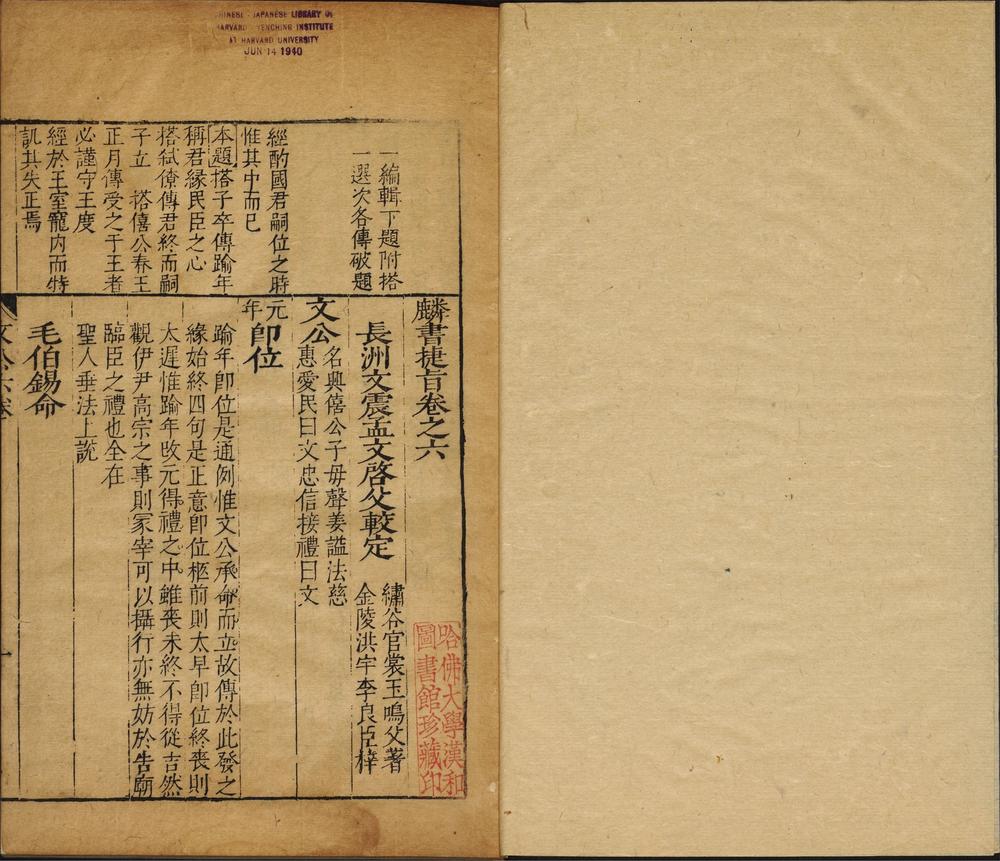 CHINESE - JAPANESE LIBRARY OF
HARVARD - YENCHING INSTITUTE
AT HARVARD UNIVERSITY
JUN 14 1940
一編輯下題附搭
一選次各傳破題
經酌國君嗣位之時
惟其中而已
本題搭子卒傳踰年
稱君緣民臣之心
搭弒僚傳君終而嗣
子立 搭僖公春王
正月傳受之于王者
必謹守王度
經於王室寵内而特
訊其失正焉
麟書捷旨卷之六
長洲文震孟文啓父較定
繡谷官裳玉鳴父著
金陵洪宇李良臣梓
文公
名興僖公子毋聲姜謚法慈
惠愛民曰文忠信接禮曰文
元年
即位
踰年即位是通例惟文公承命而立故傳於此發之
緣始終四句是正意即位柩前則太早即位終喪則
太遲惟踰年改元得禮之中雖喪未終不得從吉然
觀伊尹高宗之事則冢宰可以攝行亦無妨於告廟
臨臣之禮也全在
聖人垂法上説
毛伯錫命
文公六卷
一
哈佛大學漢和
圖書館珍藏印